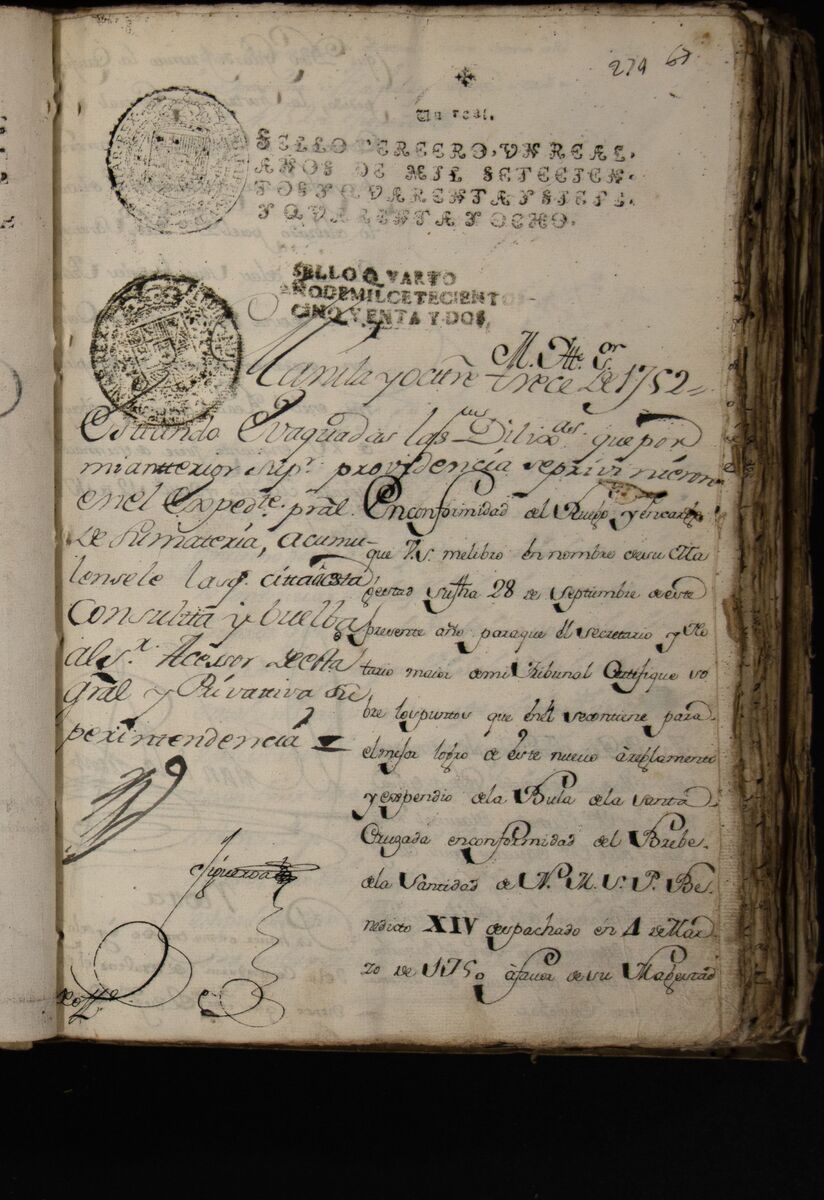 279 67
Un real.
SELLO TERCERO, VN REAL,
AÑOS DE MIL SETECIEN-
TOS Y QVARENTA Y SIETE,
Y QVARENTA Y OCHO.
SELLO QVARTO
AÑO DE MIL CETECIENTOS
CINQVENTA Y DOS,
M. Ytte. Sor.
Manila y octre trece de 1752=
Estando Evaquadas las Dilixas que por
mi antterior supr providencia se privinieron
en el Expedte. pral.
de su materia, acumu-
lensele las citta
Consulta y buelba
al Sr. Acessor de esta
gral y Privativa Su
perintendencia
Figueroa
En conformidad del Ruego y encargo
que V.S. me libro en nombre de su Ma
gestad su fha 28 de Septiembre de este
presente año para que El secretario y No
tario maior de mi Tribunal Certifique so
bre los puntos que en el se contiene para
el mejor logro de este nuevo àreglamento
y expendio de la Bula de la santa
Cruzada en conformidad del Brebe
de la Santidad de N. M. S. P. Be
nedicto XIV despachado en 4 de Mar
zo de 1750 à favor de su Magestad